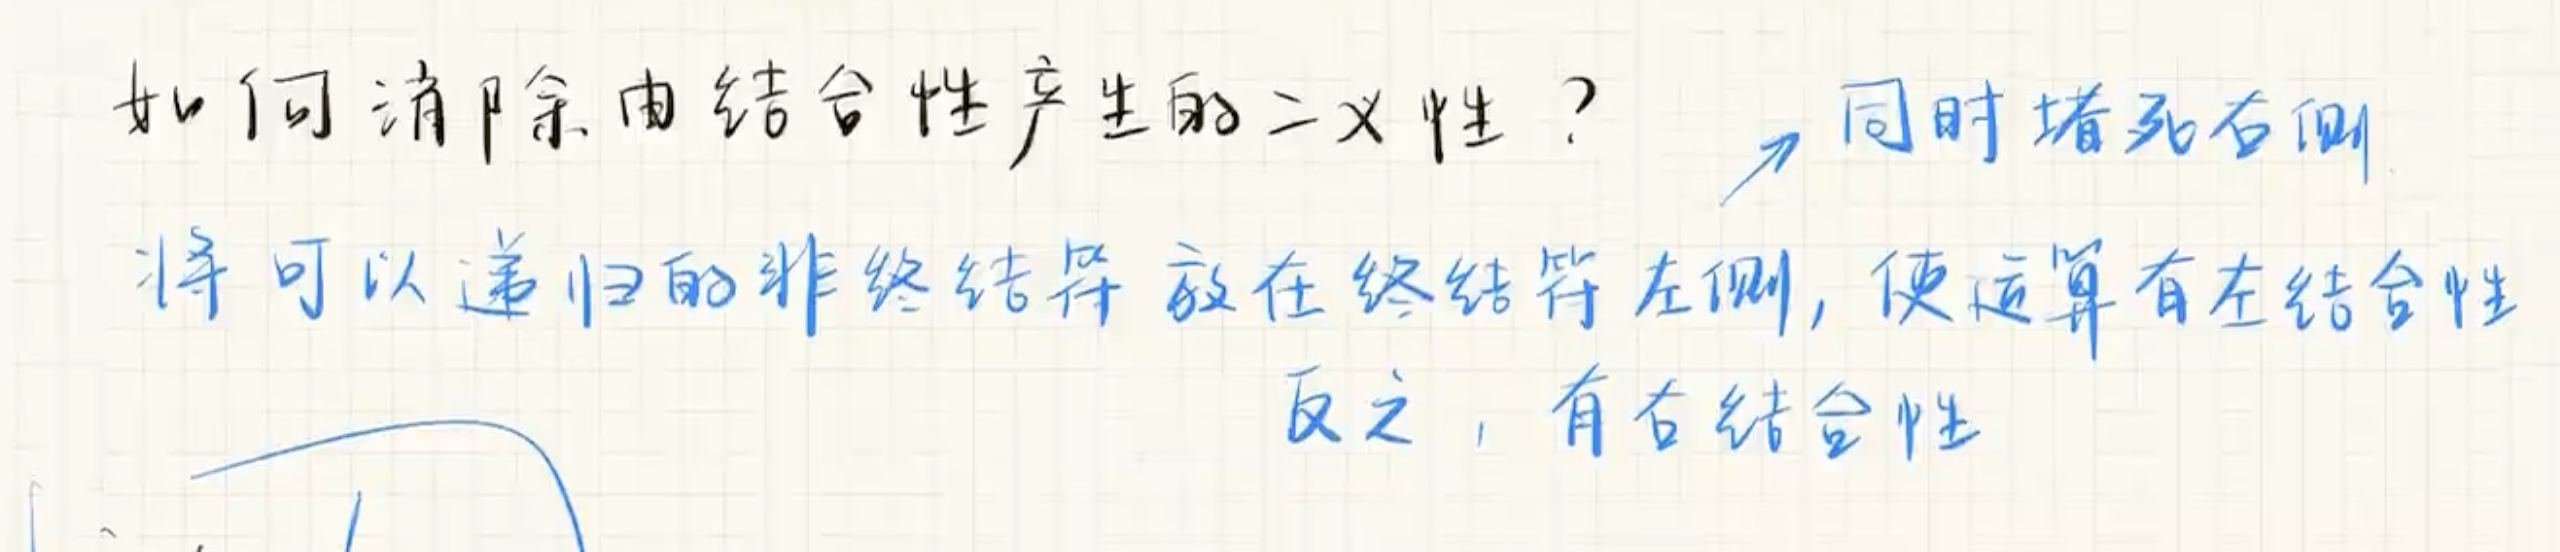 如何消除由结合性产生的二义性？
同时堵死右侧
将可以递归的非终结符放在终结符左侧，使运算有左结合性
反之，有右结合性